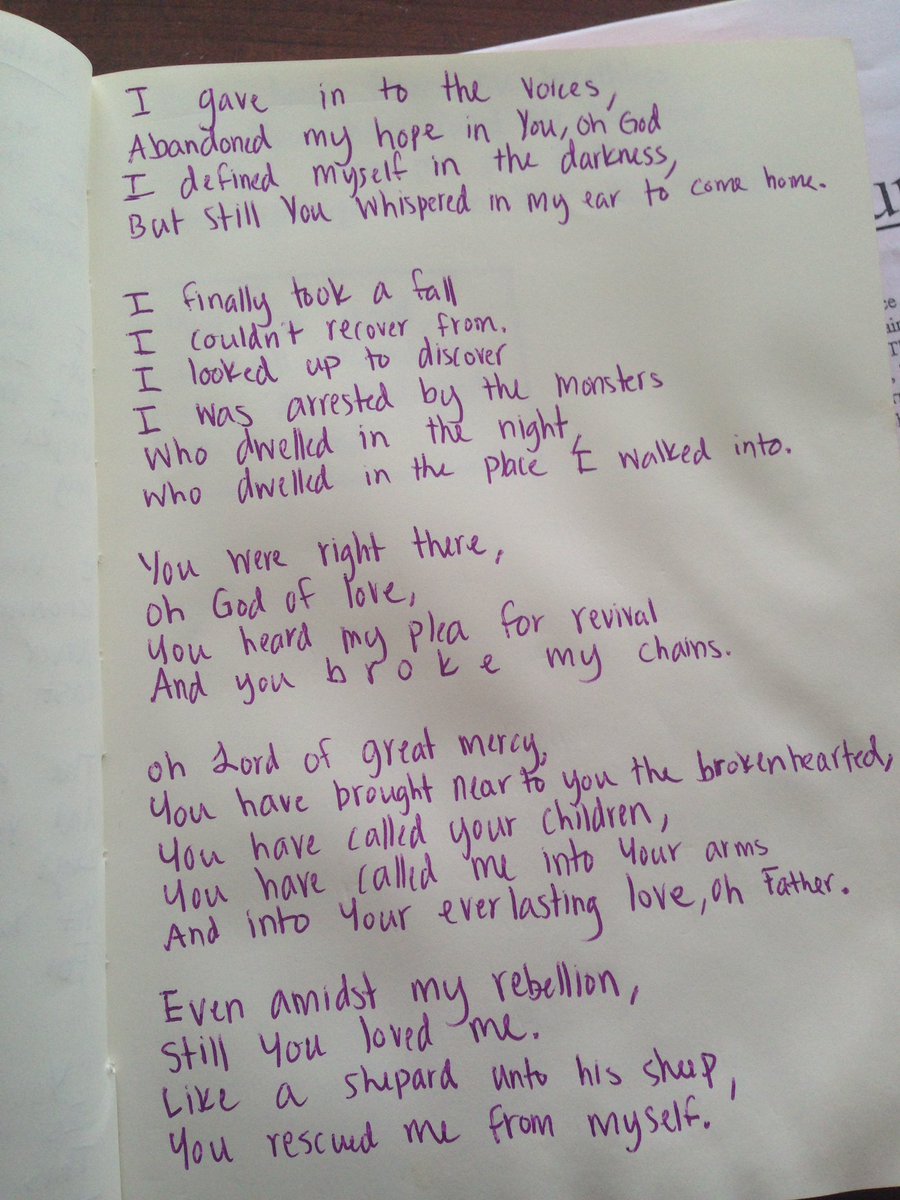 I gave in to the voices,
Abandoned my hope in You, oh God
I defined myself in the darkness,
But still You whispered in my ear to come home.
I finally took a fall
I couldn't recover from.
I looked up to discover
I was arrested by the monsters
Who dwelled in the night,
Who dwelled in the place I walked into.
You were right there,
oh God of love,
You heard my plea for revival
And you broke my chains.
oh Lord of great mercy,
You have brought near to you the brokenhearted,
You have called your children,
You have called me into Your arms
And into Your everlasting love, oh Father.
Even amidst my rebellion,
Still You loved me.
Like a shepard unto his sheep,
You rescued me from myself.